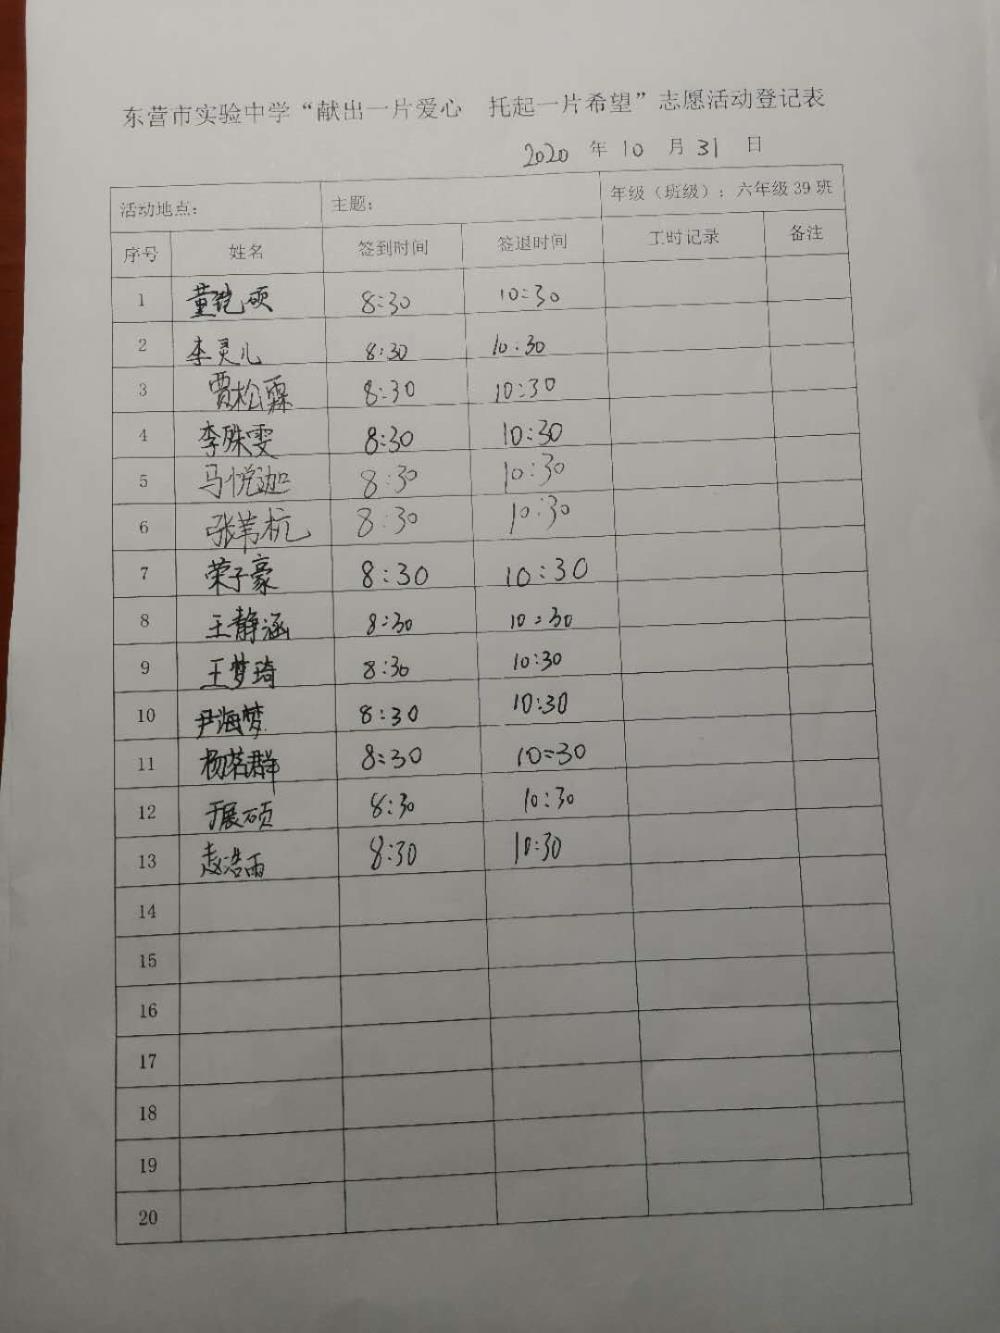 东营市实验中学“献出一片爱心 托起一片希望”志愿活动登记表
2020 年 10 月 31 日
活动地点: 主题: 年级（班级）: 六年级 39 班
序号 姓名 签到时间 签退时间 工时记录 备注
1 董铠硕 8:30 10:30
2 李灵儿 8:30 10:30
3 贾松霖 8:30 10:30
4 李殊雯 8:30 10:30
5 马悦迦 8:30 10:30
6 张苇杭 8:30 10:30
7 荣子豪 8:30 10:30
8 王静涵 8:30 10:30
9 王梦琦 8:30 10:30
10 尹海梦 8:30 10:30
11 杨茗群 8:30 10:30
12 于展硕 8:30 10:30
13 赵浩雨 8:30 10:30
14
15
16
17
18
19
20